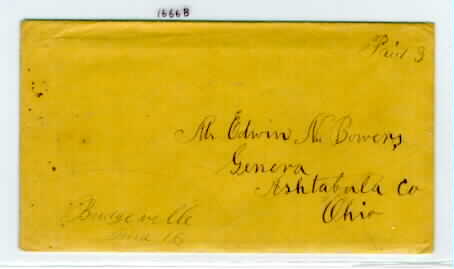 1666B
Paid 3
Mr. Edwin N. Bowers,
Geneva
Ashtabula Co
Ohio
Bridgeville
16